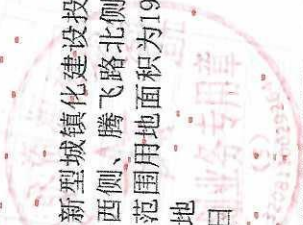 新型城镇化建设投
西侧、腾飞路北侧
范围用地面积为19
地
日
业务专用章